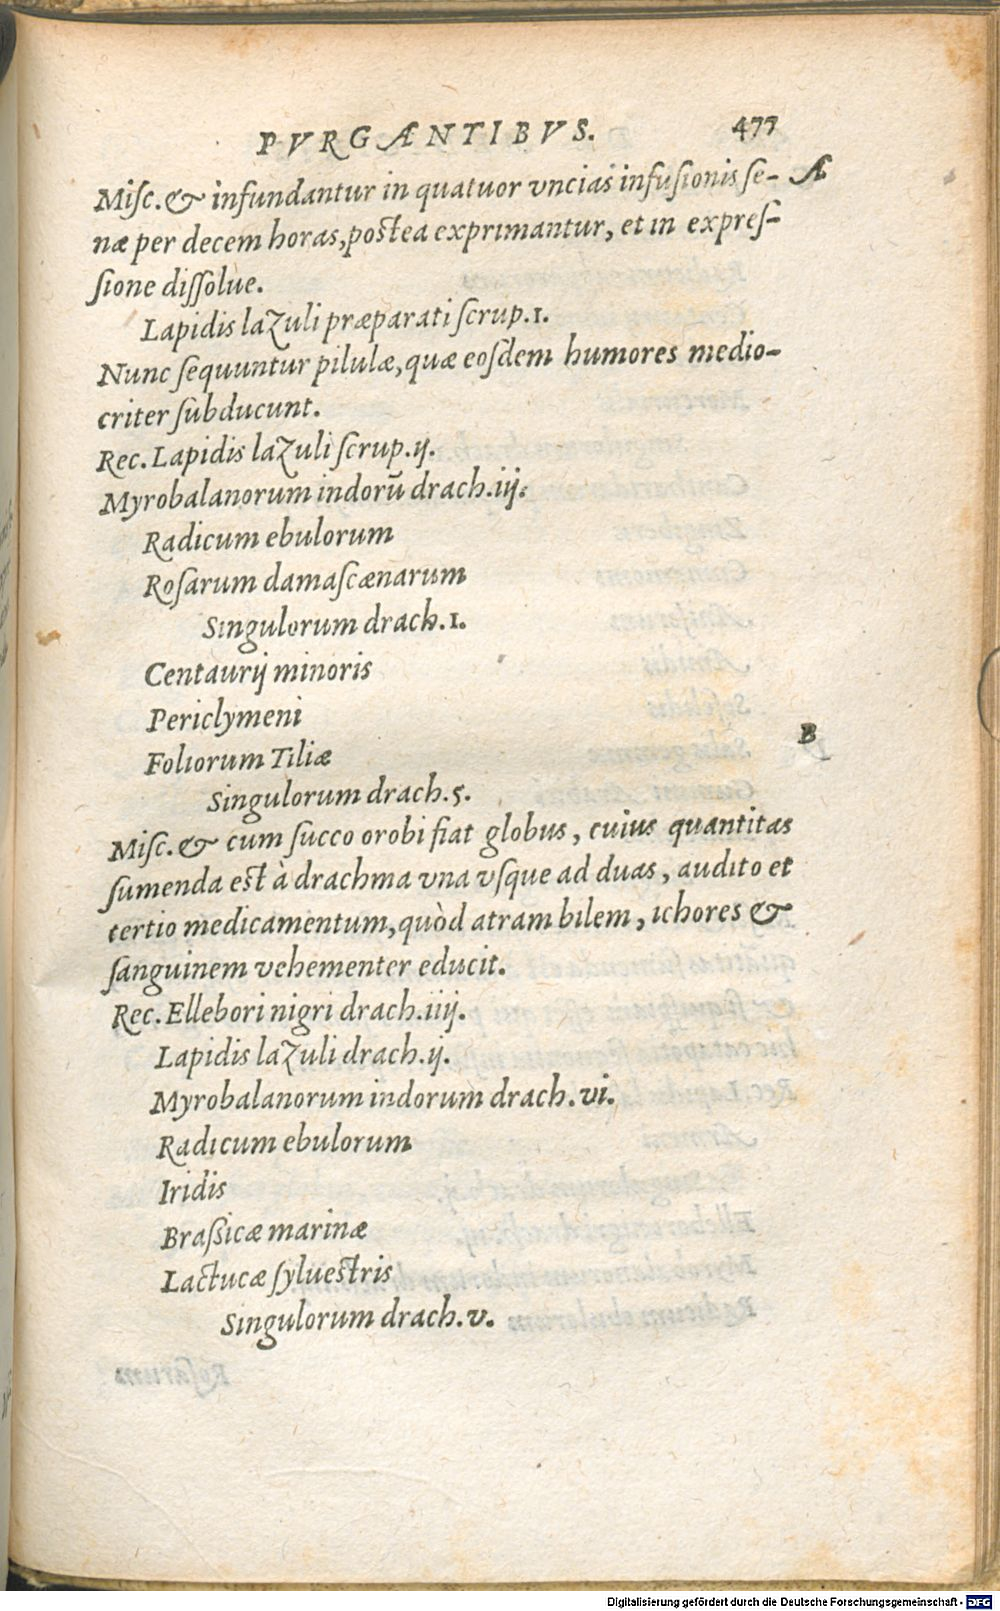 PVRGANTIBVS. 477
Misc. & infundantur in quatuor vncias infusionis se- A
næ per decem horas, postea exprimantur, et in expres-
sione dissolue.
Lapidis lazuli præparati scrup.1.
Nunc sequuntur pilulæ, quæ eosdem humores medio-
criter subducunt.
Rec. Lapidis lazuli scrup.ij.
Myrobalanorum indorū drach.iij.
Radicum ebulorum
Rosarum damascænarum
Singulorum drach.1.
Centaurij minoris
Periclymeni
B
Foliorum Tiliæ
Singulorum drach.5.
Misc. & cum succo orobi fiat globus, cuius quantitas
sumenda est à drachma vna vsque ad duas, audito et
tertio medicamentum, quòd atram bilem, ichores &
sanguinem vehementer educit.
Rec. Ellebori nigri drach.iiij.
Lapidis lazuli drach.ij.
Myrobalanorum indorum drach.vi.
Radicum ebulorum
Iridis
Brassicæ marinæ
Lactucæ syluestris
Singulorum drach.v.
Digitalisierung gefördert durch die Deutsche Forschungsgemeinschaft - DFG